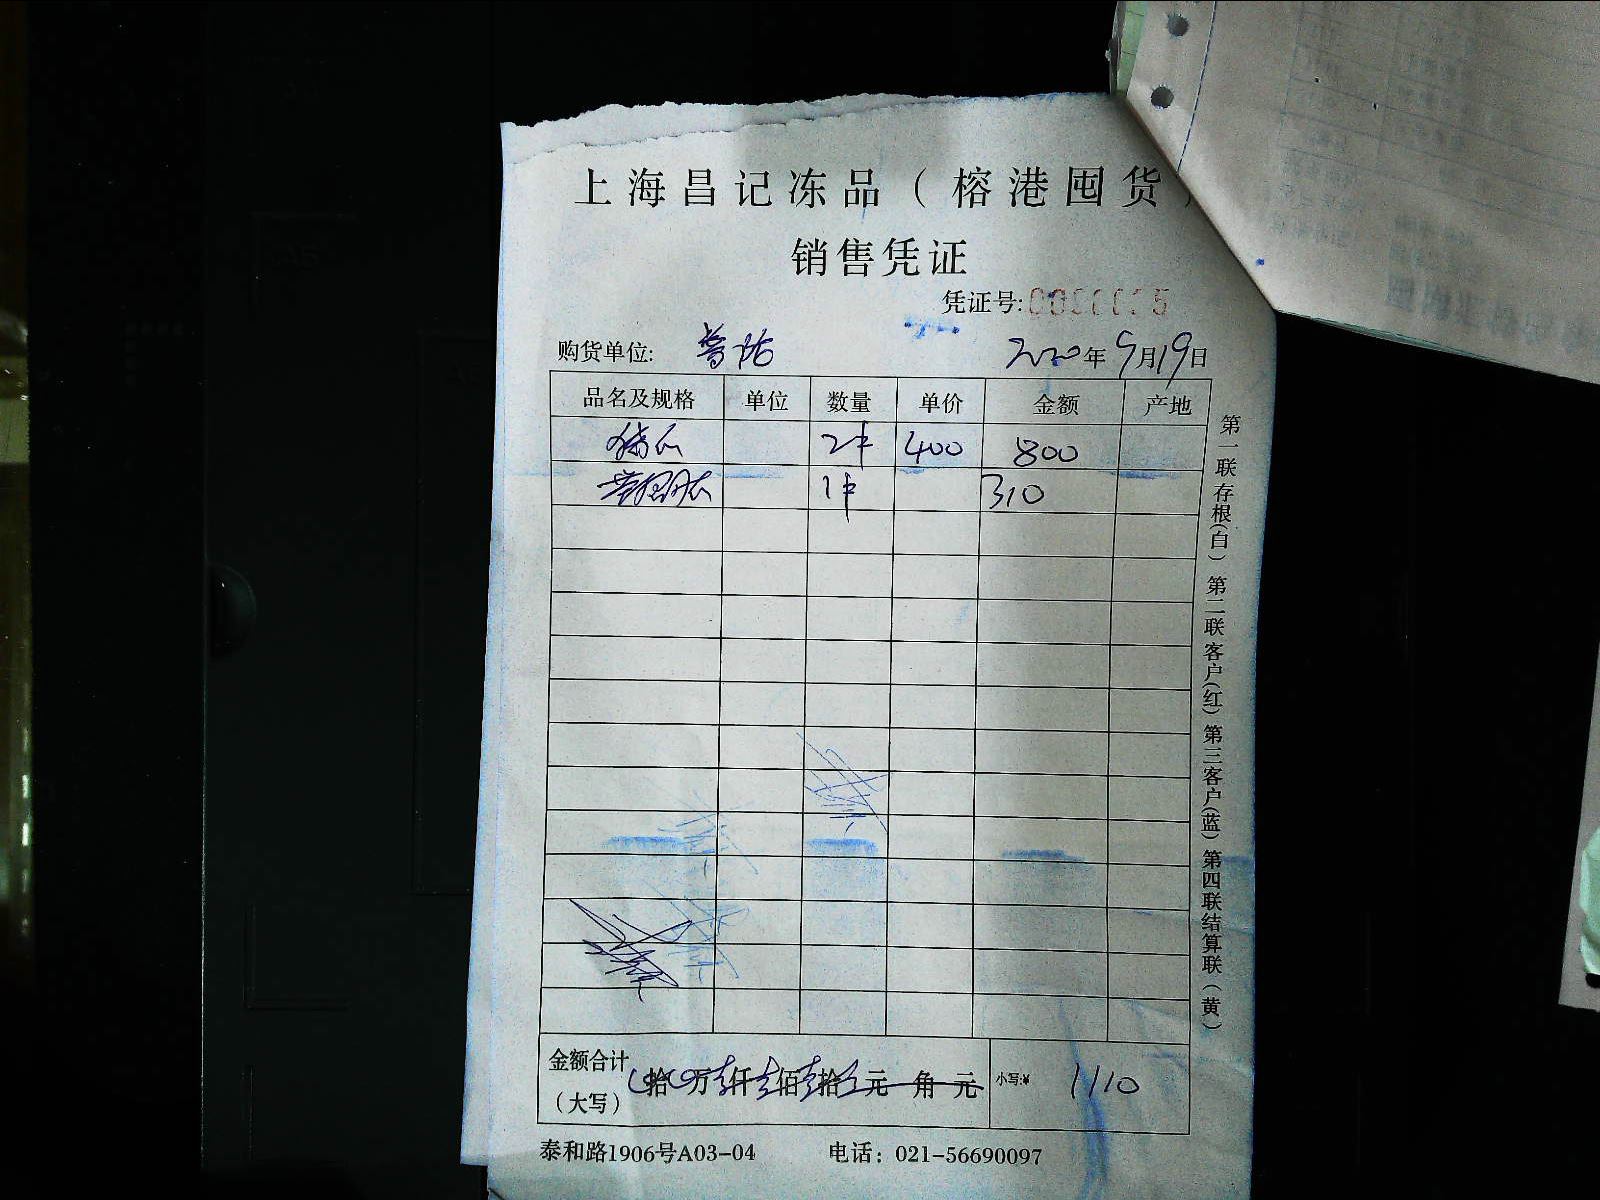 上海昌记冻品（榕港囤货）
销售凭证
凭证号:
购货单位: 普陀 2020年9月19日
品名及规格 单位 数量 单价 金额 产地
2件 400 800
1件 310
金额合计（大写） 拾 万 仟 佰 拾 元 角 元 小写:¥ 1110
泰和路1906号A03-04 电话：021-56690097
第一联存根(白) 第二联客户(红) 第三客户(蓝) 第四联结算联（黄）